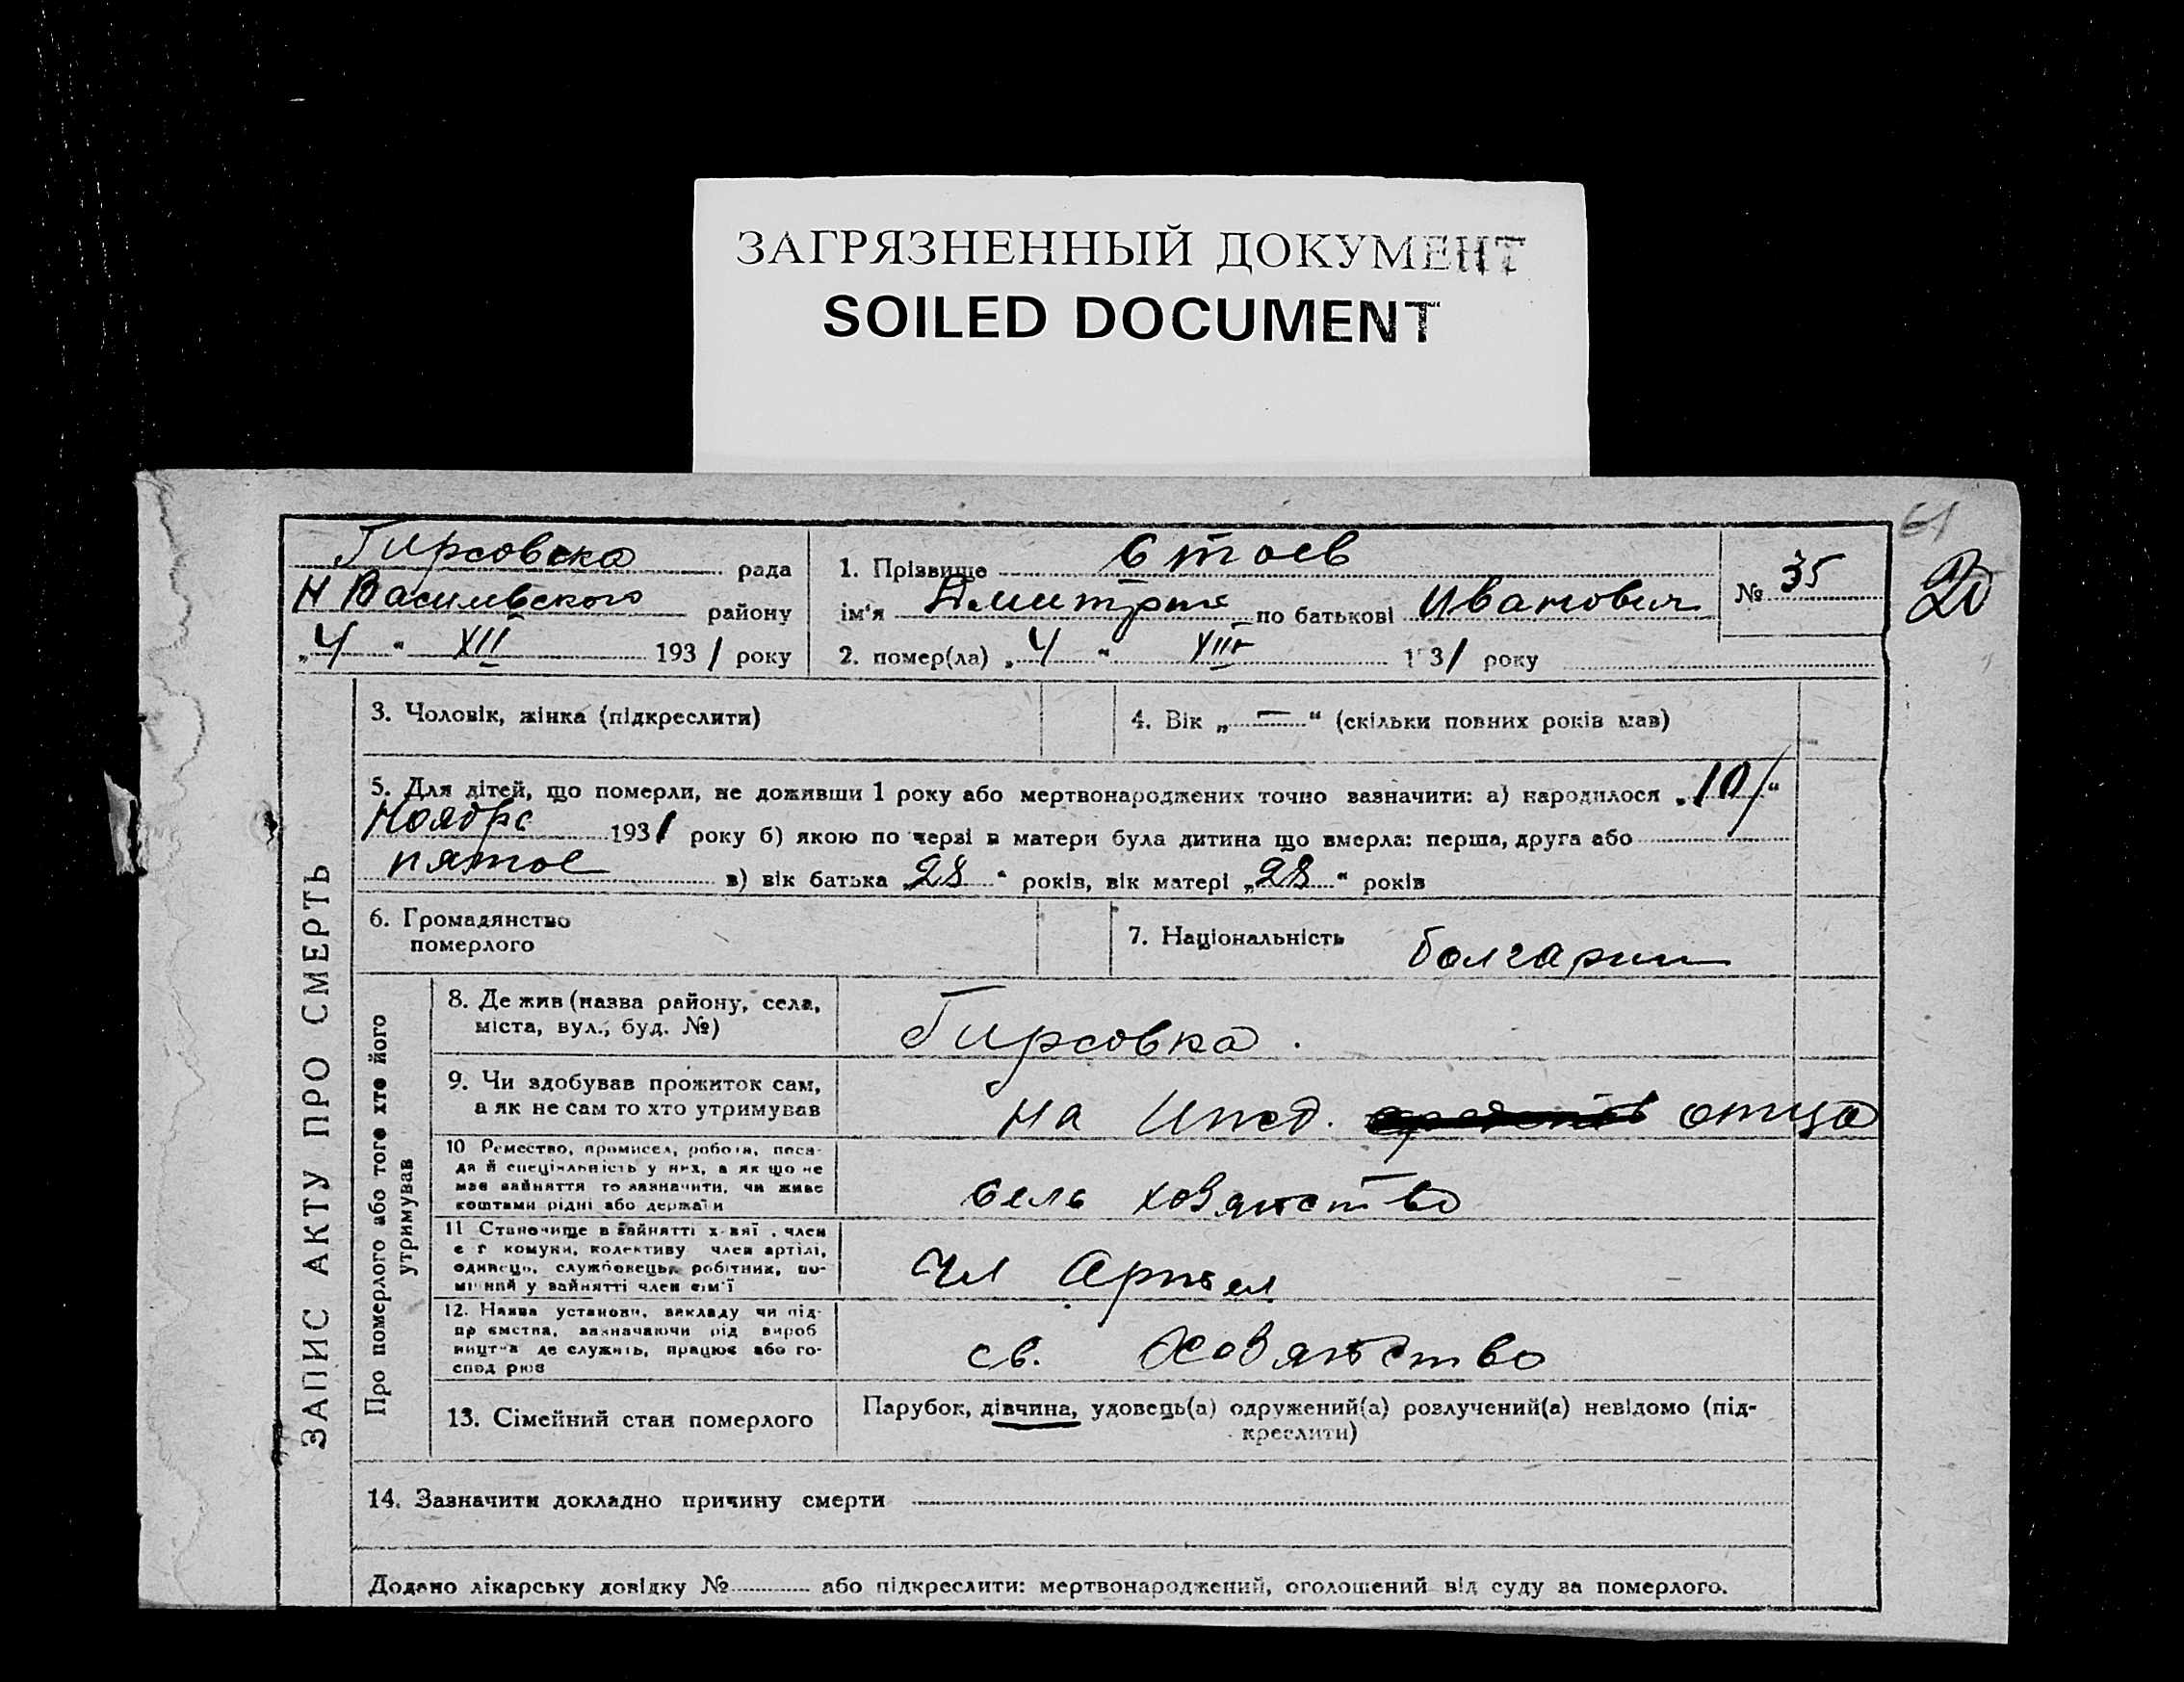 ЗАГРЯЗНЕННЫЙ ДОКУМЕНТ
SOILED DOCUMENT
61
20
Гирсовска рада
Н Васильвского району
„4“ XII 1931 року
1. Прізвище Стоев
ім'я Дмитрия по батькові Иванович
№ 35
2. помер(ла) „4“ XII 1931 року
ЗАПИС АКТУ ПРО СМЕРТЬ
3. Чоловік, жінка (підкреслити)
4. Вік „—“ (скільки повних років мав)
5. Для дітей, що померли, не доживши 1 року або мертвонароджених точно зазначити: а) народилося „10/“
Ноября 1931 року б) якою по черзі в матери була дитина що вмерла: перша, друга або
пятое в) вік батька „28“ років, вік матері „28“ років
6. Громадянство
померлого
7. Національність болгарин
Про померлого або того хто його
утримував
8. Де жив (назва району, села,
міста, вул., буд. №)
Гирсовка.
9. Чи здобував прожиток сам,
а як не сам то хто утримував
На Ижд. отца
10 Ремество, промисел, робота, поса-
да й спеціяльність у них, а як що не
має зайняття то зазначити, чи живе
коштами рідні або держави
сель хозянство
11 Становище в зайнятті х-вяї, член
с г комуни, колективу член артілі,
одинець, службовець, робітник, по-
мічний у зайнятті член сім'ї
Чл Артел
12. Назва установи, закладу чи під-
пр ємства, зазначаючи рід вироб
ництва де служить, працює або го-
спод рює
св. Хозянство
13. Сімейний стан померлого
Парубок, дівчина, удовець(а) одружений(а) розлучений(а) невідомо (під-
креслити)
14. Зазначити докладно причину смерти
Додано лікарську довідку № або підкреслити: мертвонароджений, оголошений від суду за померлого.